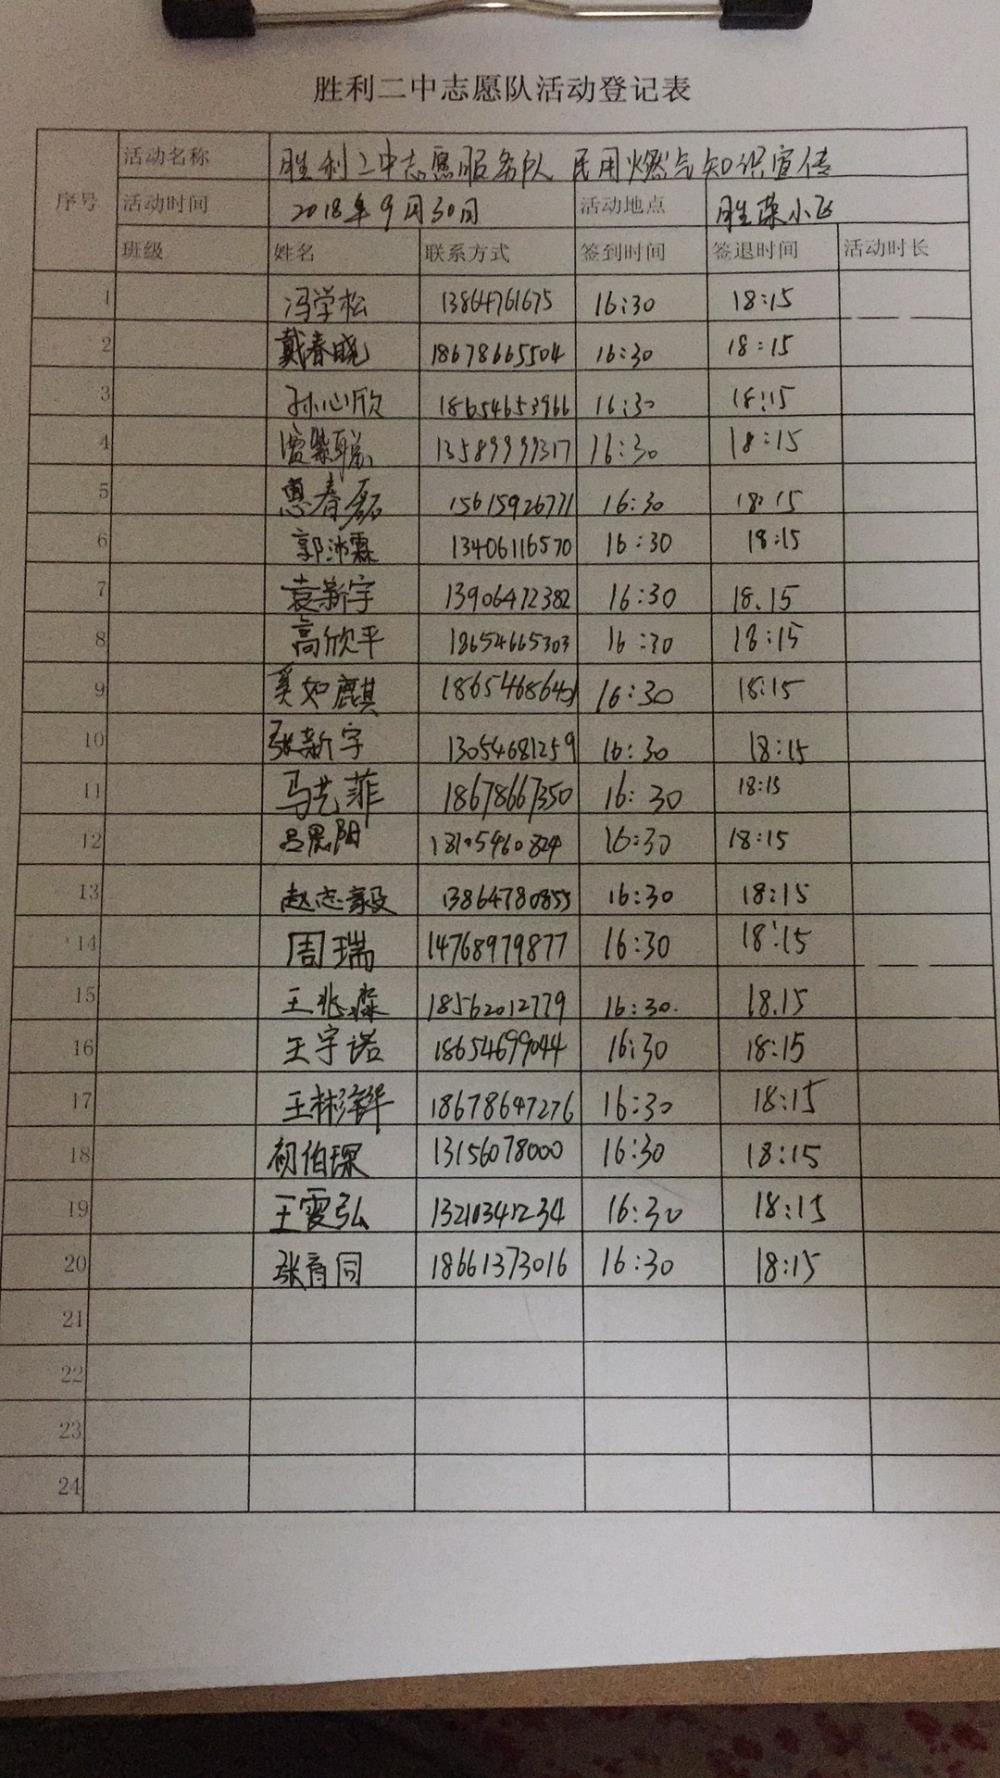 胜利二中志愿队活动登记表
序号 活动名称 胜利二中志愿服务队 民用燃气知识宣传
活动时间 2018年9月30日 活动地点 胜荣小区
班级 姓名 联系方式 签到时间 签退时间 活动时长
1 冯学松 13864761675 16:30 18:15
2 戴春晓 18678665504 16:30 18:15
3 孙心欣 18654653966 16:30 18:15
4 13589999317 16:30 18:15
5 惠春磊 15615926771 16:30 18:15
6 郭沛霖 13406116570 16:30 18:15
7 袁新宇 13906472382 16:30 18.15
8 高欣平 18654665303 16:30 18:15
9 奚如麒 16:30 18:15
10 张新宇 13054681259 16:30 18:15
11 马艺菲 18678667350 16:30 18:15
12 吕思阳 18105460824 16:30 18:15
13 赵志毅 13864780855 16:30 18:15
14 周瑞 14768979877 16:30 18:15
15 王兆淼 18562012779 16:30. 18.15
16 王宇诺 18654699044 16:30 18:15
17 王彬泽华 18678647276 16:30 18:15
18 初伯琛 13156078000 16:30 18:15
19 王雯弘 13210341234 16:30 18:15
20 张育同 18661373016 16:30 18:15
21
22
23
24